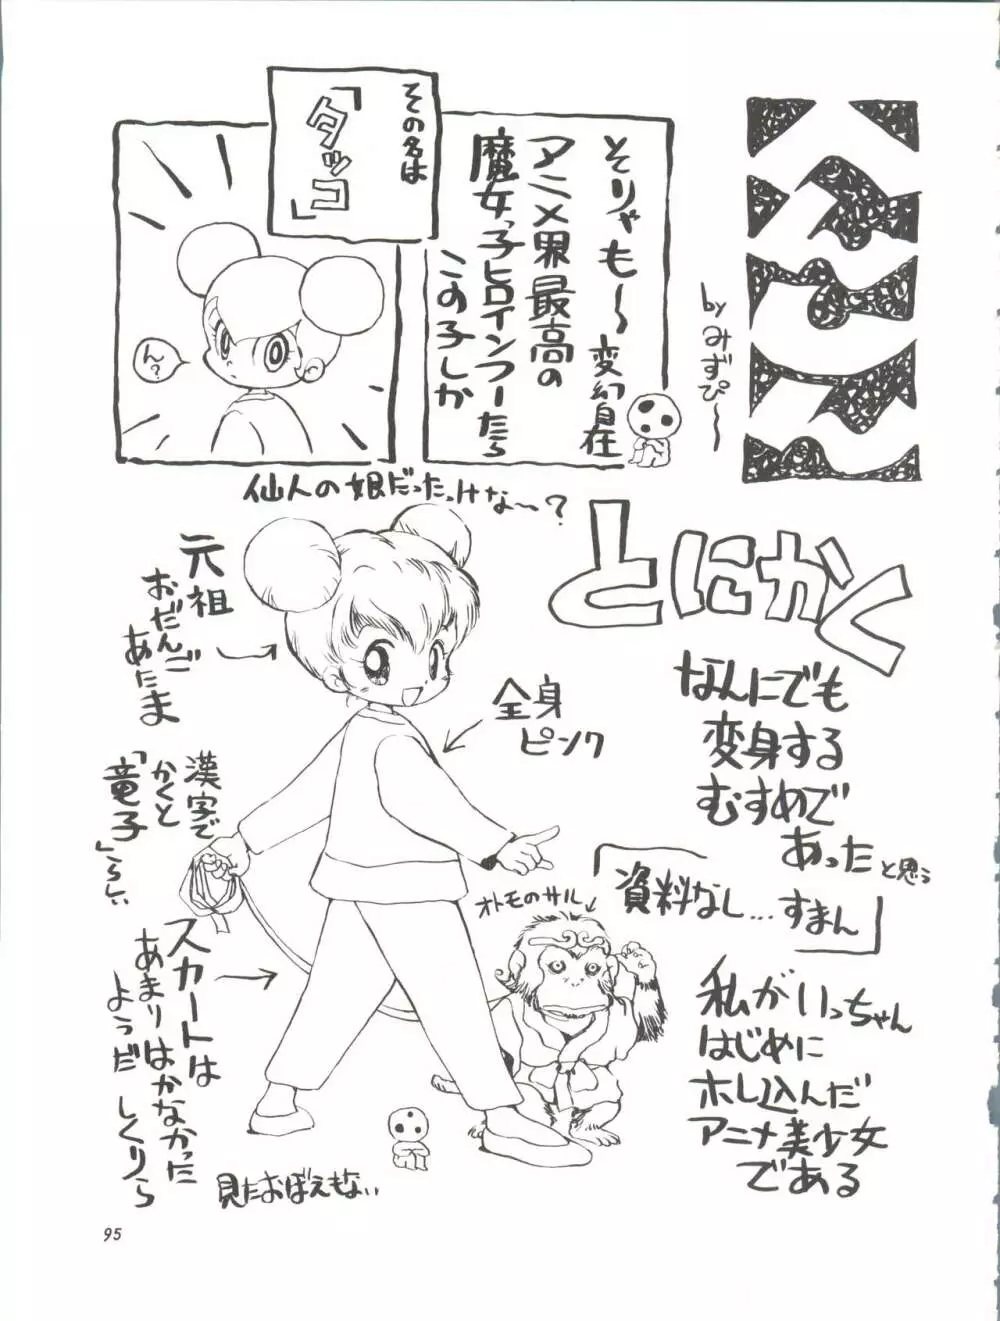 byみずぴ〜
そりゃも〜
変幻自在
アニメ界最高の
魔女っ子ヒロインつーたら
この子しか
その名は
「タッコ」
ん?
仙人の娘だったっけな〜?
とにかく
なんにでも
変身する
むすめで
あったと思う
「資料なし…すまん」
私がいっちゃん
はじめに
ホレ込んだ
アニメ美少女
である
元祖
おだんご
あたま
全身
ピンク
漢字で
かくと
「竜子」らしい
オトモのサル
スカートは
あまりはかなかった
ようだ
見たおぼえもない
95